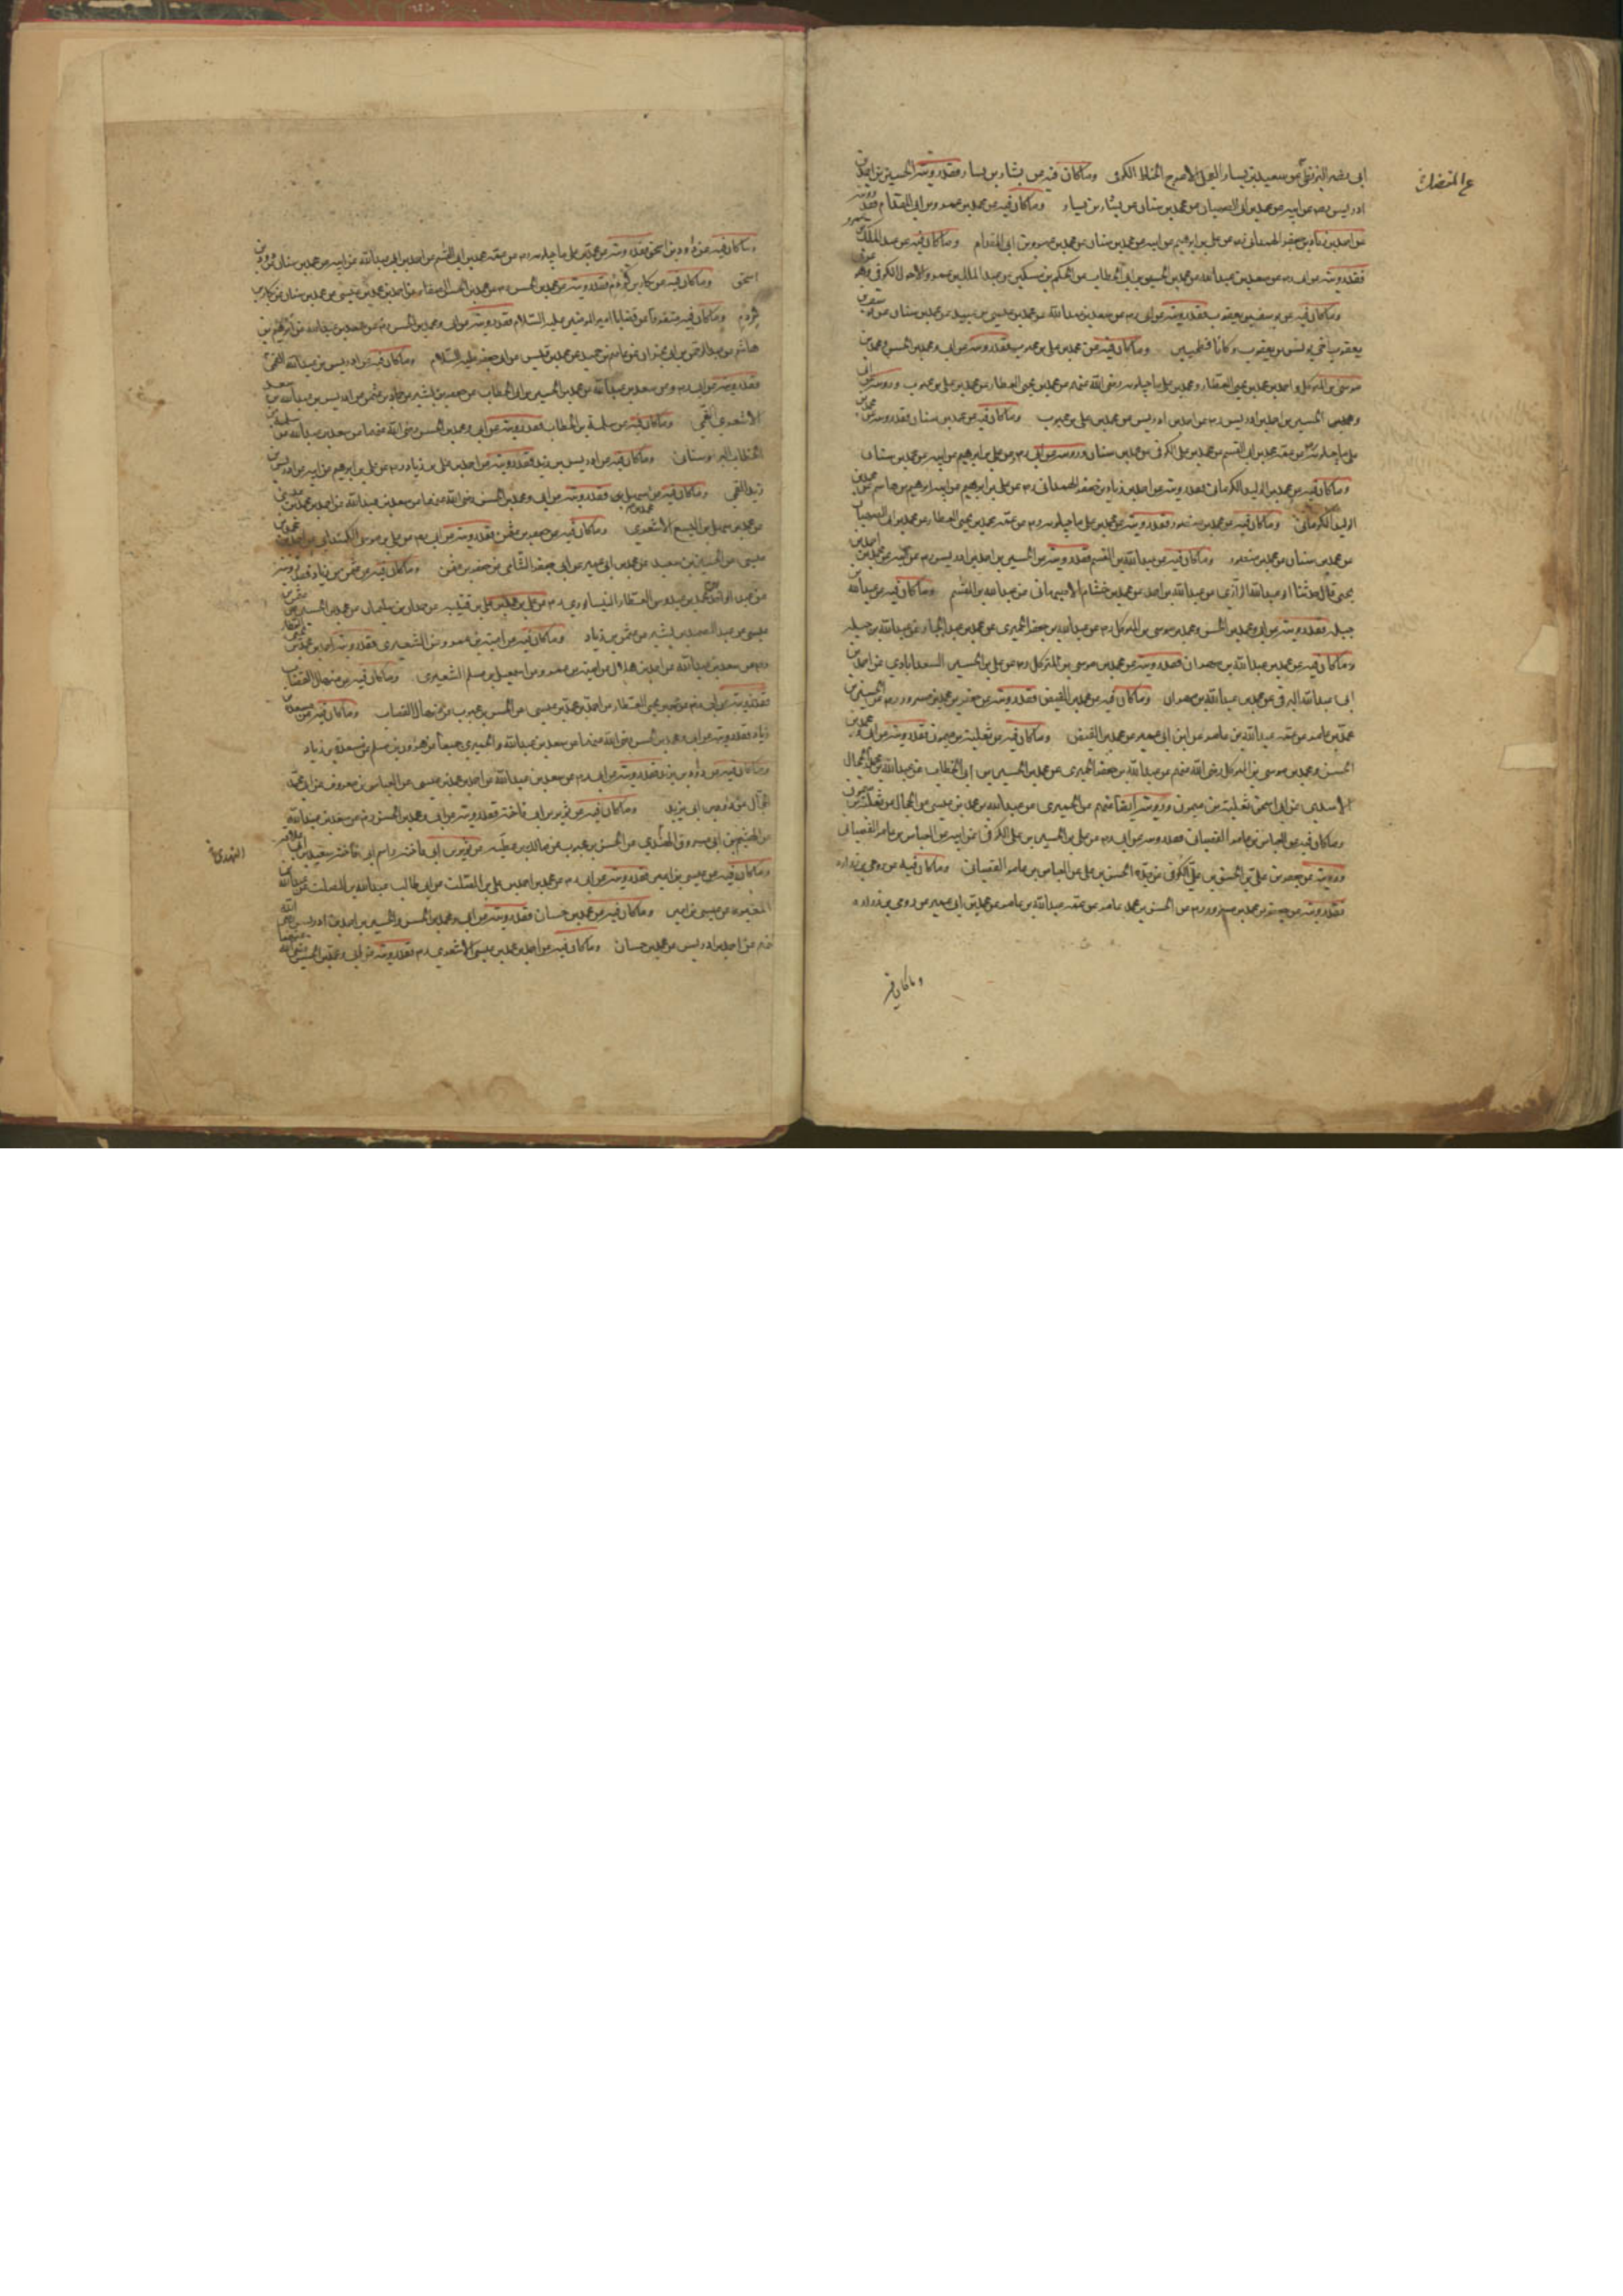 ابى نصر البزنطى عن سعيد بن يسار العجلى الاعرج الحناط الكوفى وما كان فيه عن بشار بن يسار فقد رويته عن الحسين بن احمد بن
ادريس عن ابيه عن محمد بن ابى الصهبان عن محمد بن سنان عن بشار بن يسار وما كان فيه عن محمد بن عمرو بن ابى المقدام فقد رويته
عن احمد بن زياد بن جعفر الهمدانى عن على بن ابراهيم عن ابيه عن محمد بن سنان عن محمد بن عمرو بن ابى المقدام وما كان فيه عن عبد الملك بن
فقد رويته عن ابى ره عن سعد بن عبد الله عن محمد بن الحسين بن ابى الخطاب عن الحكم بن مسكين عن عبد الملك بن عمرو الاحول الكوفى
وما كان فيه عن يوسف بن يعقوب فقد رويته عن ابى ره عن سعد بن عبد الله عن محمد بن عيسى بن عبيد عن محمد بن سنان عن يوسف بن
يعقوب اخى يونس بن يعقوب وكانا فطحيين وما كان فيه عن محمد بن على بن محبوب فقد رويته عن ابى ومحمد بن الحسن ومحمد بن
موسى بن المتوكل واحمد بن محمد بن يحيى العطار ومحمد بن على ماجيلويه رضى الله عنهم عن محمد بن يحيى العطار عن محمد بن على بن محبوب ورويته عن ابى
والحسين بن احمد بن ادريس ره عن احمد بن ادريس عن محمد بن على بن محبوب وما كان فيه عن محمد بن سنان فقد رويته عن محمد بن
على ماجيلويه عن عمه محمد بن ابى القسم عن محمد بن على الكوفى عن محمد بن سنان ورويته عن ابى ره عن على بن ابراهيم عن ابيه عن محمد بن سنان
وما كان فيه عن محمد بن الوليد الكرمانى فقد رويته عن احمد بن زياد بن جعفر الهمدانى ره عن على بن ابراهيم عن ابيه ابراهيم بن هاشم عن محمد بن
الوليد الكرمانى وما كان فيه عن محمد بن منصور فقد رويته عن محمد بن على ماجيلويه ره عن عمه محمد بن يحيى العطار عن محمد بن ابى الصهبان
عن محمد بن سنان عن محمد بن منصور وما كان فيه عن عبد الله بن القسم فقد رويته عن الحسين بن احمد بن ادريس ره عن ابيه عن محمد بن احمد بن
يحيى قال حدثنا ابو عبد الله الرازى عن عبد الله بن احمد عن محمد بن خشنام الاصبهانى عن عبد الله بن القسم وما كان فيه عن عبد الله بن
جبله فقد رويته عن ابى ومحمد بن الحسن ومحمد بن موسى بن المتوكل ره عن عبد الله بن جعفر الحميرى عن محمد بن عبد الجبار عن عبد الله بن جبله
وما كان فيه عن محمد بن عبد الله بن مهران فقد رويته عن محمد بن موسى بن المتوكل ره عن على بن الحسين السعدابادى عن احمد بن
ابى عبد الله البرقى عن محمد بن عبد الله بن مهران وما كان فيه عن محمد بن الفيض فقد رويته عن جعفر بن محمد بن مسرور ره عن الحسين بن
محمد بن عامر عن عمه عبد الله بن عامر عن ابن ابى عمير عن محمد بن الفيض وما كان فيه عن ثعلبة بن ميمون فقد رويته عن ابى ومحمد بن
الحسن ومحمد بن موسى بن المتوكل رضى الله عنهم عن عبد الله بن جعفر الحميرى عن محمد بن الحسين بن ابى الخطاب عن عبد الله بن محمد الحجال
الاسدى عن ابى اسحق ثعلبة بن ميمون ورويته ايضا عنهم عن الحميرى عن عبد الله بن محمد بن عيسى عن الحجال عن ثعلبة بن ميمون
وما كان فيه عن العباس بن عامر القصبانى فقد رويته عن ابى ره عن على بن الحسين بن على الكوفى عن ابيه عن العباس بن عامر القصبانى
ورويته عن جعفر بن على بن الحسن بن على الكوفى عن جده الحسن بن على عن العباس بن عامر القصبانى وما كان فيه عن رومى بن زراره
فقد رويته عن جعفر بن محمد بن مسرور ره عن الحسين بن محمد بن عامر عن عمه عبد الله بن عامر عن محمد بن ابى عمير عن رومى بن زراره
وما كان فيه
وما كان فيه عن داود بن اسحق فقد رويته عن محمد بن على ماجيلويه ره عن عمه محمد بن ابى القسم عن احمد بن ابى عبد الله عن ابيه عن محمد بن سنان عن داود بن
اسحق وما كان فيه عن بكار بن كردم فقد رويته عن محمد بن الحسن ره عن محمد بن الحسن الصفار عن احمد بن محمد بن عيسى عن محمد بن سنان عن بكار بن
كردم وما كان فيه متفرقا من قضايا امير المؤمنين عليه السلام فقد رويته عن ابى ومحمد بن الحسن ره عن سعد بن عبد الله عن ابراهيم بن
هاشم عن عبد الرحمن بن ابى نجران عن عاصم بن حميد عن محمد بن قيس عن ابى جعفر عليه السلام وما كان فيه عن ادريس بن عبد الله القمى
فقد رويته عن ابى ره عن سعد بن عبد الله عن محمد بن الحسين بن ابى الخطاب عن جعفر بن بشير عن حماد بن عثمن عن ادريس بن عبد الله بن سعد
الاشعرى القمى وما كان فيه عن سلمة بن الخطاب فقد رويته عن ابى ومحمد بن الحسن رضى الله عنهما عن سعد بن عبد الله عن سلمة بن
الخطاب البراوستانى وما كان فيه عن ادريس بن زيد فقد رويته عن احمد بن على بن زياد ره عن على بن ابرهيم عن ابيه عن ادريس بن
زيد القمى وما كان فيه عن محمد بن سهل فقد رويته عن ابى ومحمد بن الحسن رضى الله عنهما عن سعد بن عبد الله عن احمد بن محمد بن عيسى
عن محمد بن سهل بن اليسع الاشعرى وما كان فيه عن جعفر بن عثمن فقد رويته عن ابى ره عن على بن موسى الكمندانى عن احمد بن محمد بن
عيسى عن الحسين بن سعيد عن محمد بن ابى عمير عن ابى جعفر الشامى عن جعفر بن عثمن وما كان فيه عن عثمن بن زياد فقد رويته
عن عبد الواحد بن محمد بن عبدوس العطار النيسابورى ره عن على بن محمد بن قتيبه عن حمدان بن سليمان عن محمد بن الحسين عن عثمن بن
عيسى عن عبد الصمد بن بشير عن عثمن بن زياد وما كان فيه عن امية بن عمرو عن الشعيرى فقد رويته عن احمد بن محمد بن يحيى العطار
ره عن سعد بن عبد الله عن احمد بن هلال عن امية بن عمرو عن اسمعيل بن مسلم الشعيرى وما كان فيه عن منهال القصاب
فقد رويته عن ابى ره عن محمد بن يحيى العطار عن احمد بن محمد بن عيسى عن الحسن بن محبوب عن منهال القصاب وما كان فيه عن مسعدة بن
زياد فقد رويته عن ابى ومحمد بن الحسن رضى الله عنهما عن سعد بن عبد الله والحميرى جميعا عن هرون بن مسلم عن مسعدة بن زياد
وما كان فيه عن داود بن ابى يزيد فقد رويته عن ابى ره عن سعد بن عبد الله عن احمد بن محمد بن عيسى عن العباس بن معروف عن ابى محمد
الحجال عن داود بن ابى يزيد وما كان فيه عن ثوير بن ابى فاخته فقد رويته عن ابى ومحمد بن الحسن ره عن سعد بن عبد الله
عن الهيثم بن ابى مسروق النهدى عن الحسن بن محبوب عن مالك بن عطيه عن ثوير بن ابى فاخته واسم ابى فاخته سعيد بن علاقه
وما كان فيه عن عيسى بن اعين فقد رويته عن ابى ره عن محمد بن احمد بن على بن الصلت عن ابى طالب عبد الله بن الصلت عن عبد الله بن
المغيره عن عيسى بن اعين وما كان فيه عن محمد بن حسان فقد رويته عن ابى ومحمد بن الحسن والحسين بن احمد بن ادريس رضى الله
عنهم عن احمد بن ادريس عن محمد بن حسان وما كان فيه عن احمد بن محمد بن عيسى الاشعرى ره فقد رويته عن ابى ومحمد بن الحسن رضى الله عنهما
النهدى